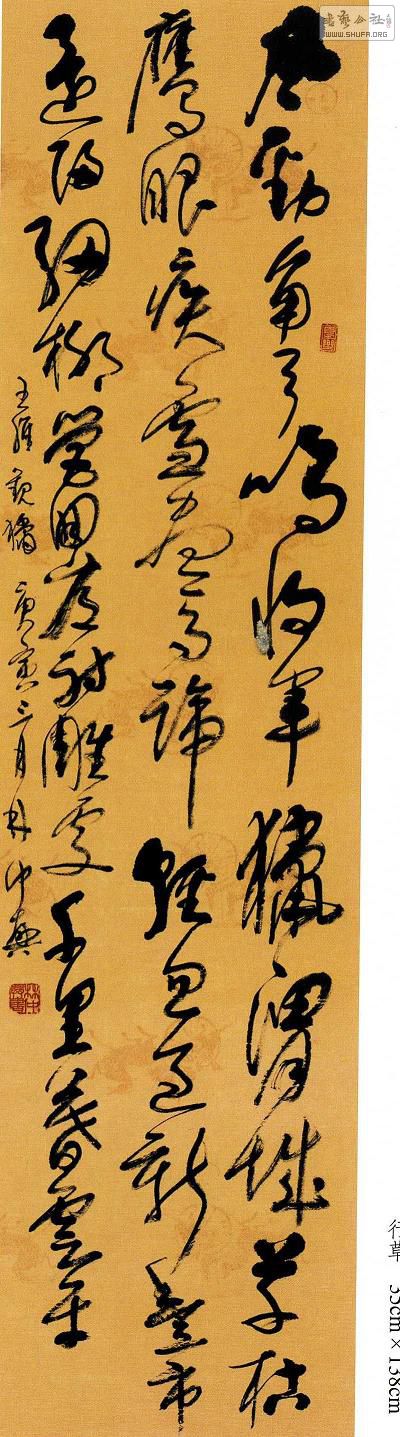 书艺公社
WWW.SHUFA.ORG
風勁角弓鳴将軍獵渭城草枯
鷹眼疾雪盡馬蹄輕忽過新豐市
還歸細柳營回看射雕處千里暮雲平
王維观獵 庚寅三月林仲興
行草 35cm×138cm